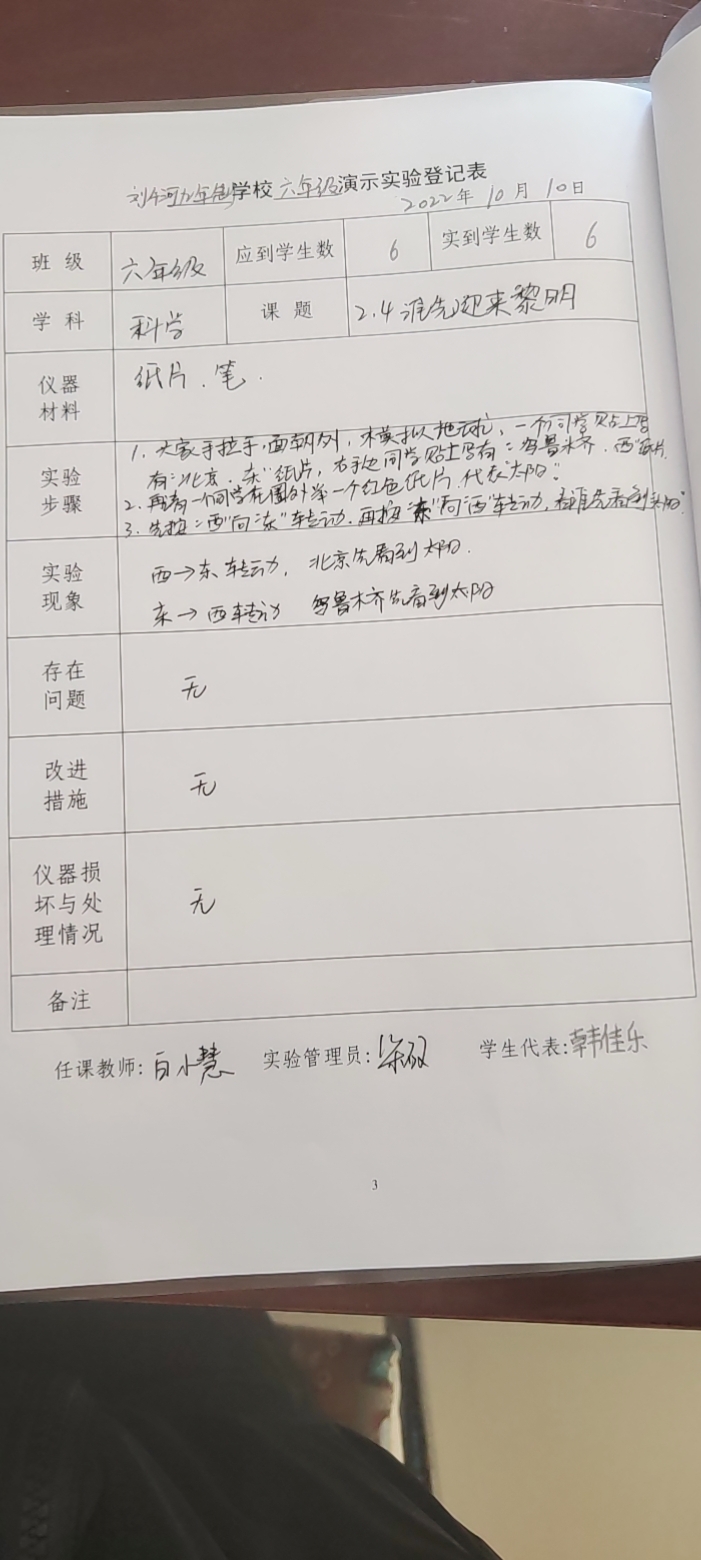 学校六年级演示实验登记表
2022年10月10日
班级 六年级 应到学生数 6 实到学生数 6
学科 科学 课题 2.4谁先迎来黎明
仪器材料 纸片、笔.
实验步骤
1. 大家手拉手,面朝外,模拟地球,一个同学贴上写
有:北京、东"纸片,右手边同学贴上写有:乌鲁木齐、西"纸片.
2. 再请一个同学在圈外举一个红色纸片,代表"太阳".
3. 先按:西"向"东"转动,再按"东"向"西"转动,看谁先看到"太阳".
实验现象
西→东转动, 北京先看到太阳.
东→西转动 乌鲁木齐先看到太阳
存在问题 无
改进措施 无
仪器损坏与处理情况 无
备注
任课教师:白小慧 实验管理员: 学生代表:韩佳乐
3